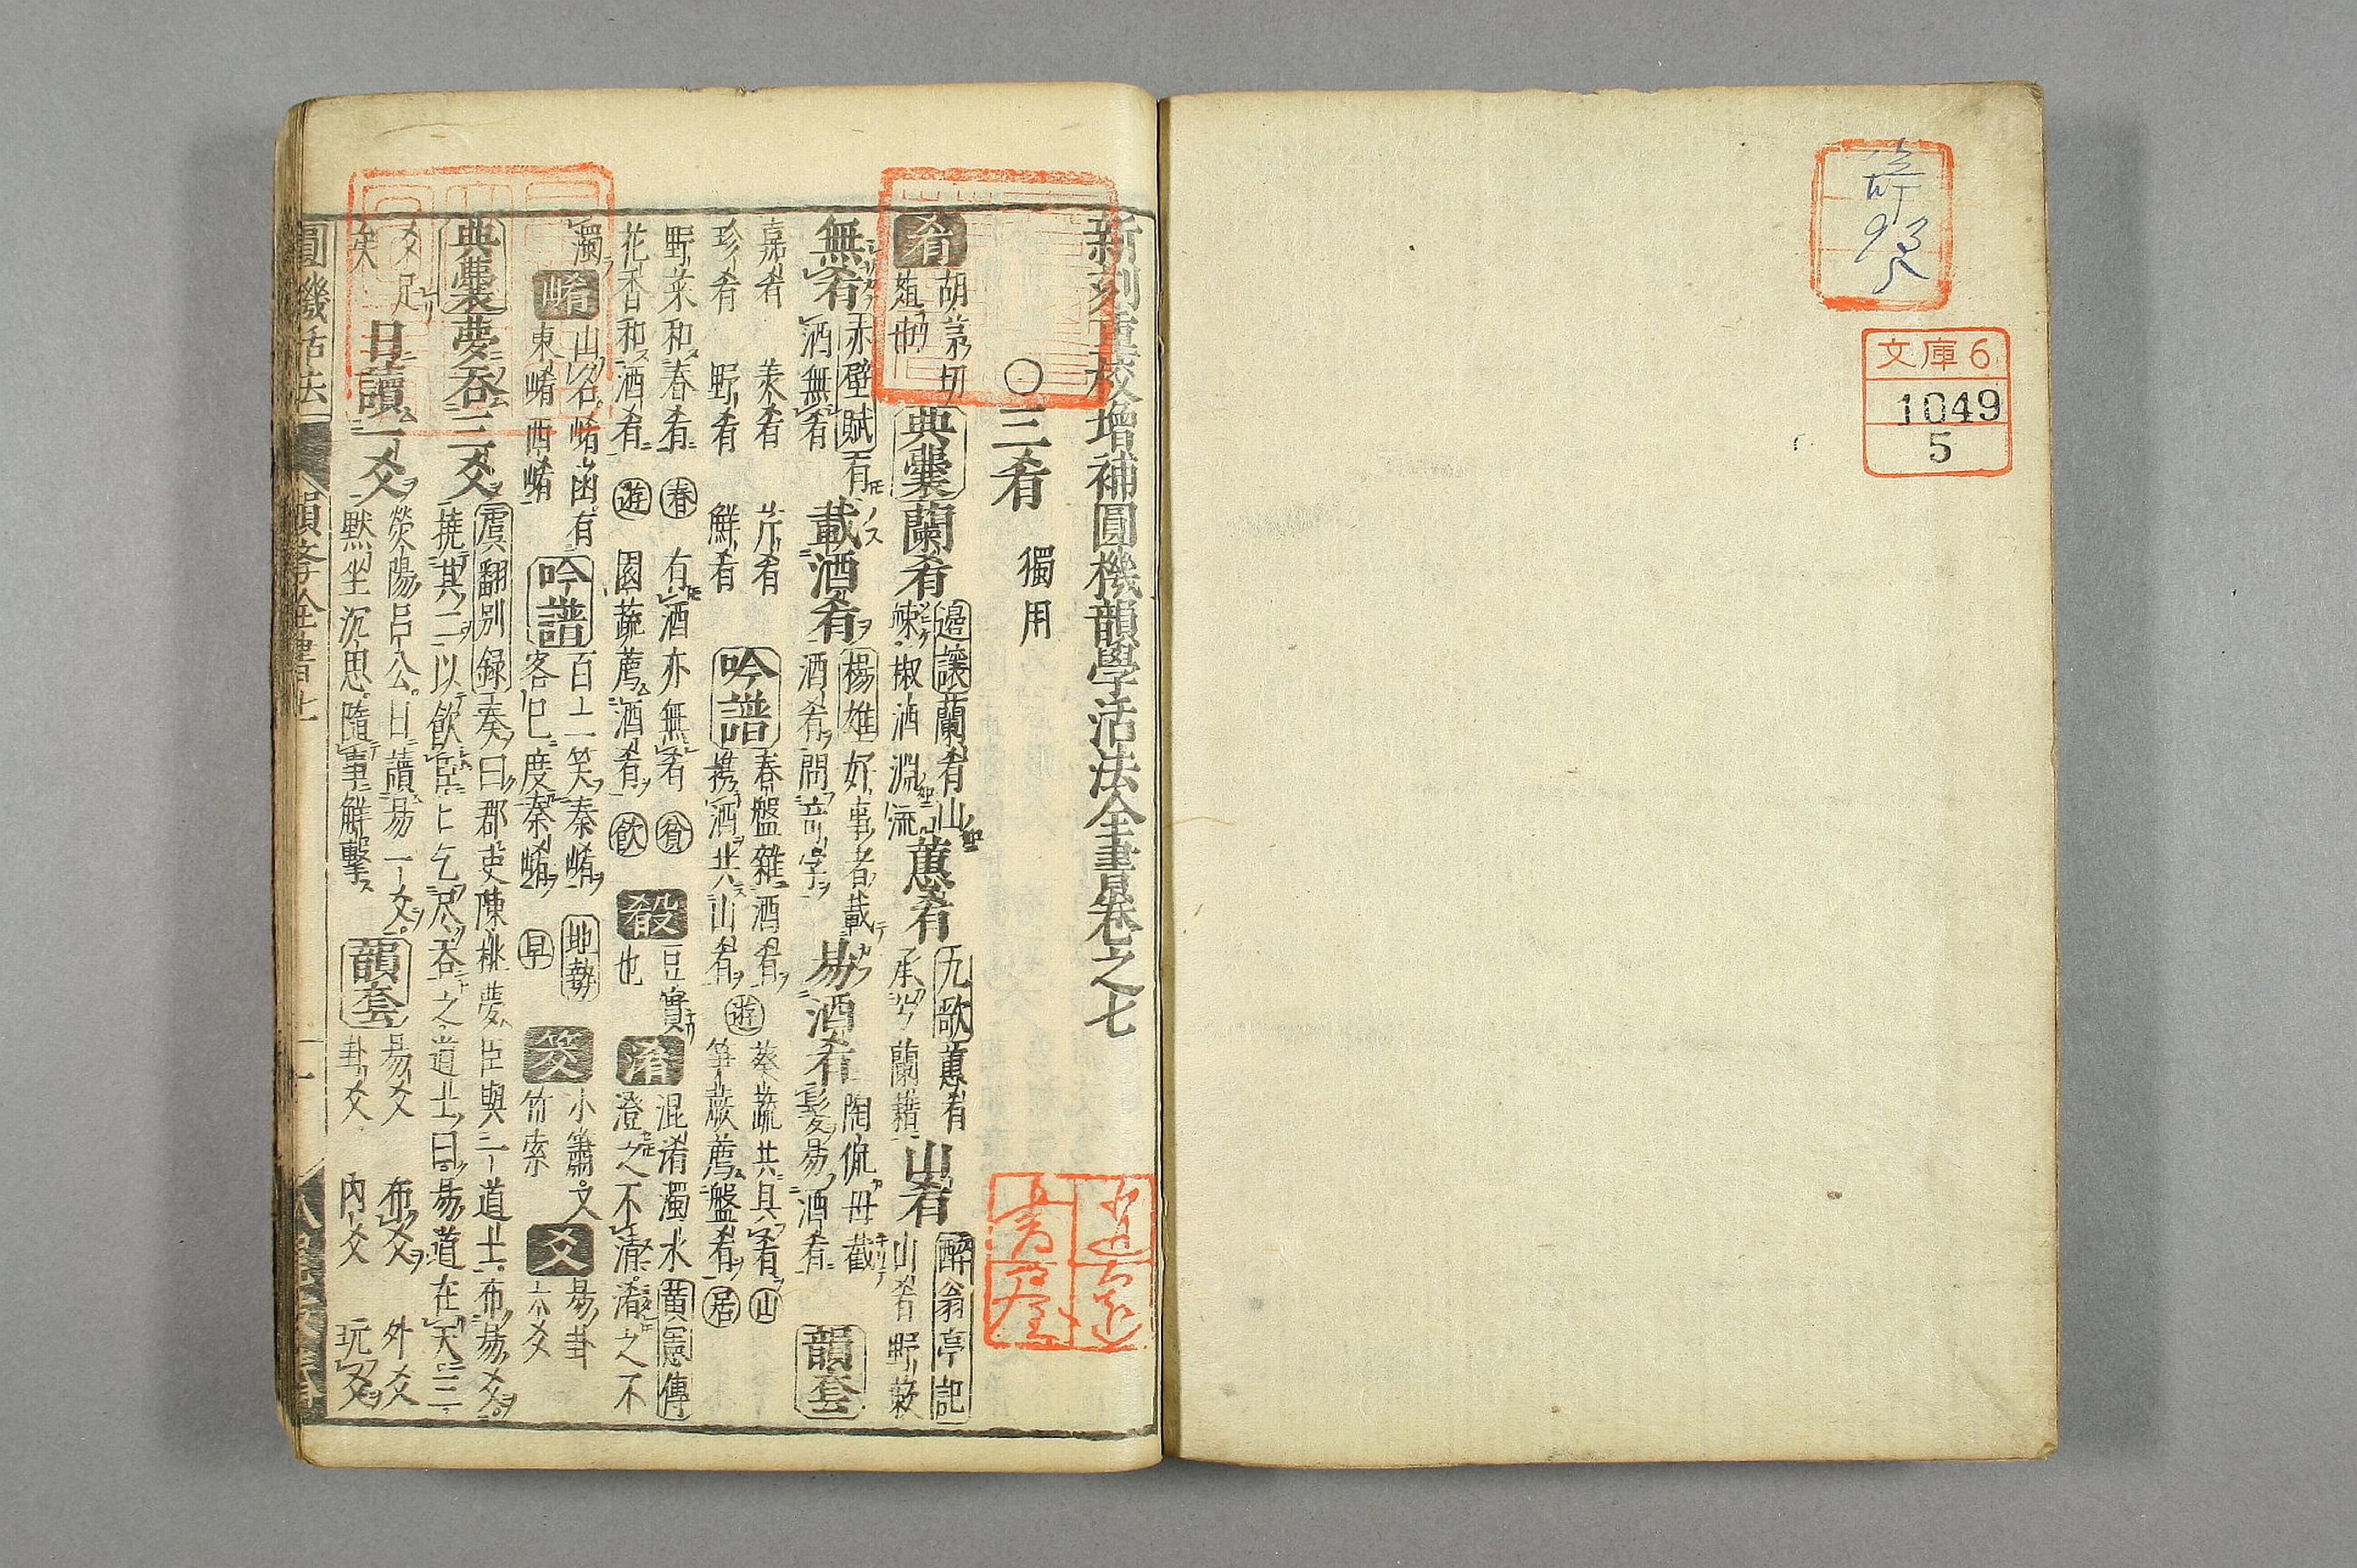 文庫6
1049
5
新刻重校增補圓機韻學活法全書卷之七
〇三肴 獨用
肴 胡茅切 葅也 典囊 蘭肴 邊讓 蘭肴山 竦椒酒淵流 蕙肴 九歌 蕙肴 承兮蘭藉 山肴 醉翁亭記 山肴野蔌
無肴 赤壁賦 有酒無肴 載酒肴 楊雄 好事者載酒肴問奇字 易酒肴 陶侃母截髮易酒肴 韻套
嘉肴 羙肴 芹肴
珍肴 野肴 鮮肴 吟譜 春盤雜酒肴 携酒共山肴 遊 葵蔬共具肴 山 笋蕨薦盤肴 居
野菜和春肴 春 有酒亦無肴 貧
花香和酒肴 遊 園蔬薦酒肴 飲 殽 豆實也 淆 混淆濁水 黃憲傳 澄之不清淆之不
濁 崤 山名崤函有東崤西崤 吟譜 百二笑秦崤 客已度秦崤 地勢 早 筊 小簫又竹索 爻 易卦六爻
典囊 夢吞三爻 虞翻別録 奏曰郡吏陳桃夢臣與一道士布易爻
撓其三以飲臣臣乞尽吞之道士曰易道在天三
爻足矣 日讀一爻 滎陽呂公日讀易一爻默坐沉思隨事解擊 韻套 易爻 布爻 外爻
卦爻 內爻 玩爻
圓機活法 韻學全書七 一